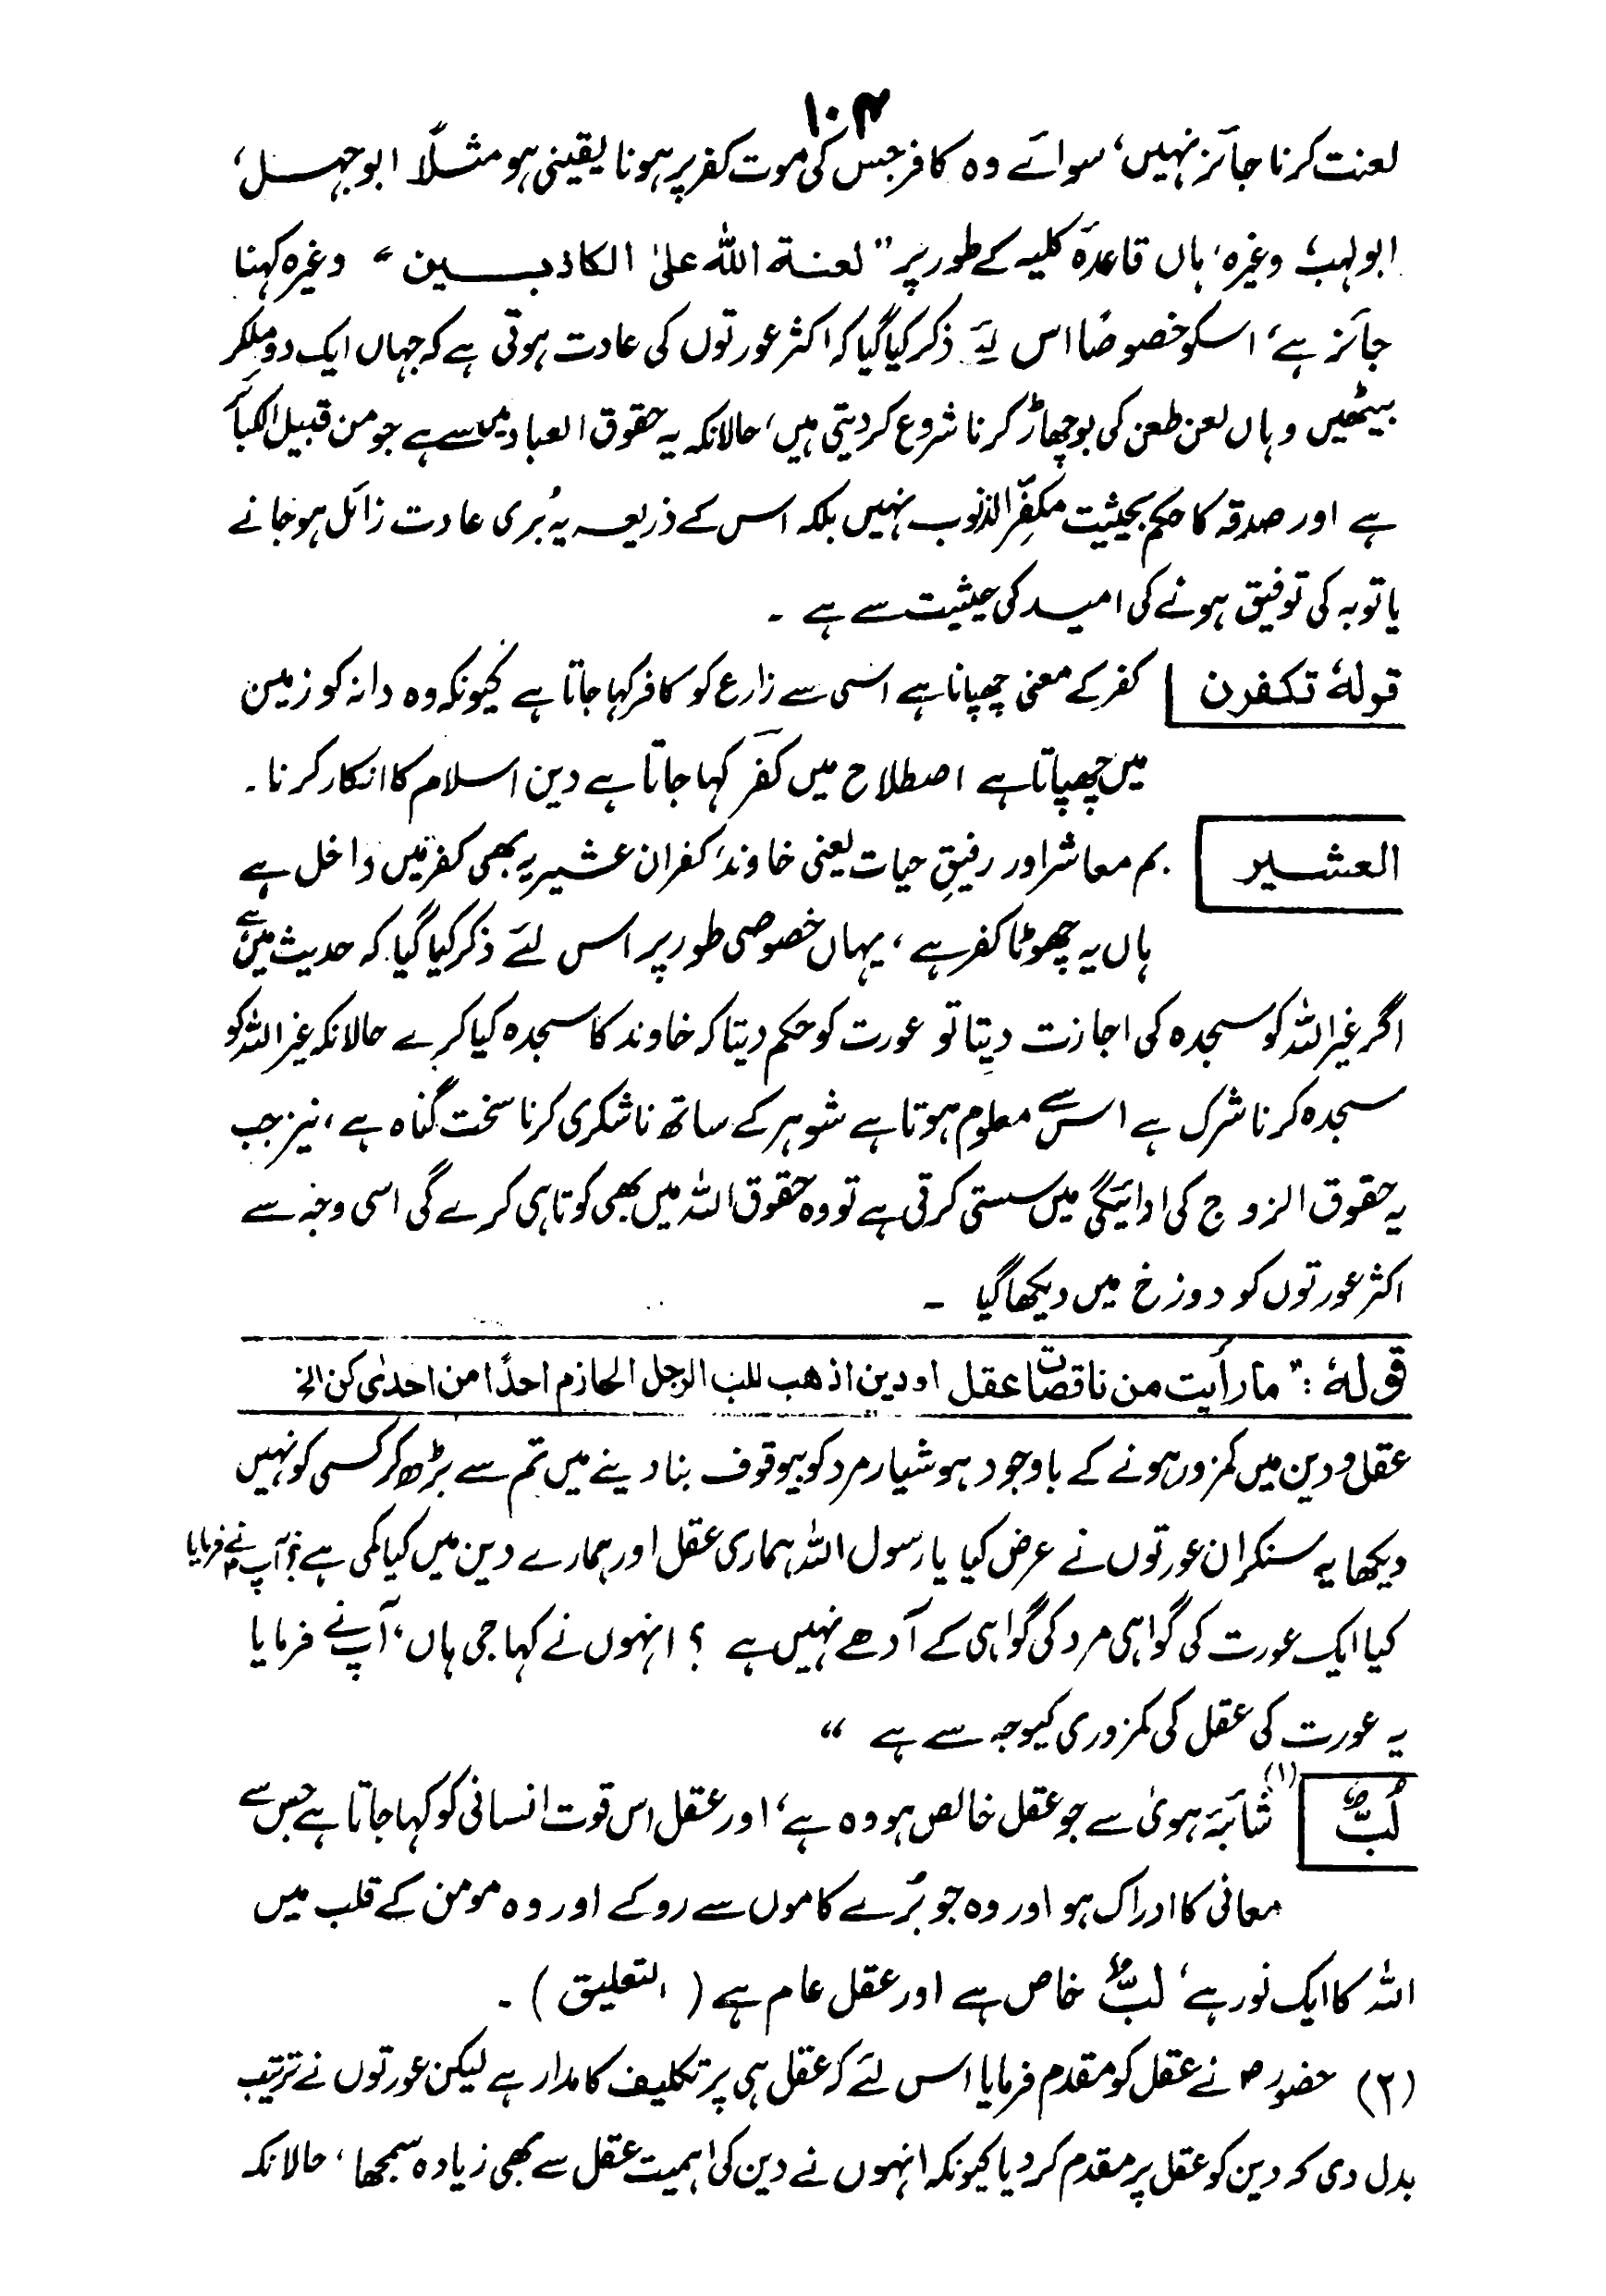 ۱۰۴
لعنت کرنا جائز نہیں، سوائے وہ کافر جس کی موت کفر پر ہونا یقینی ہو مثلاً ابو جہل،
ابولہب، وغیرہ، ہاں قاعدۂ کلیہ کے طور پر "لعنة اللّٰه علىٰ الكاذبين" وغیرہ کہنا
جائز ہے، اسکو خصوصًا اس لئے ذکر کیا گیا کہ اکثر عورتوں کی عادت ہوتی ہے کہ جہاں ایک دو ملکر
بیٹھیں وہاں لعن طعن کی بوچھاڑ کرنا شروع کر دیتی ہیں، حالانکہ یہ حقوق العباد میں سے ہے جو من قبیل الکبائر
ہے اور صدقہ کا حکم بحیثیت مکفِّر الذنوب نہیں بلکہ اس کے ذریعہ یہ بُری عادت زائل ہو جانے
یا توبہ کی توفیق ہونے کی امید کی حیثیت سے ہے ۔
قولہٗ تکفرن کفر کے معنی چھپانا ہے اسی سے زارع کو کافر کہا جاتا ہے کیونکہ وہ دانہ کو زمین
میں چھپاتا ہے اصطلاح میں کفر کہا جاتا ہے دین اسلام کا انکار کرنا ۔
العشیر بم معاشر اور رفیقِ حیات یعنی خاوند، کفران عشیر یہ بھی کفر میں داخل ہے
ہاں یہ چھوٹا کفر ہے، یہاں خصوصی طور پر اس لئے ذکر کیا گیا کہ حدیث میں ہے
اگر غیر اللہ کو سجدہ کی اجازت دیتا تو عورت کو حکم دیتا کہ خاوند کا سجدہ کیا کرے حالانکہ غیر اللہ کو
سجدہ کرنا شرک ہے اس سے معلوم ہوتا ہے شوہر کے ساتھ ناشکری کرنا سخت گناہ ہے، نیز جب
یہ حقوق الزوج کی ادائیگی میں سستی کرتی ہے تو وہ حقوق اللہ میں بھی کوتاہی کرے گی اسی وجہ سے
اکثر عورتوں کو دوزخ میں دیکھا گیا ۔
قولہٗ : "ما رأیت من ناقصات عقل او دین اذهب للب الرجل الحازم احدًا من احدٰی کن الخ
عقل و دین میں کمزور ہونے کے باوجود ہوشیار مرد کو بیوقوف بنا دینے میں تم سے بڑھ کر کسی کو نہیں
دیکھا یہ سنکر ان عورتوں نے عرض کیا یا رسول اللہ ہماری عقل اور ہمارے دین میں کیا کمی ہے؟ آپؐ نے فرمایا
کیا ایک عورت کی گواہی مرد کی گواہی کے آدھے نہیں ہے ؟ انہوں نے کہا جی ہاں، آپ نے فرمایا
یہ عورت کی عقل کی کمزوری کیوجہ سے ہے "
لُبّ (۱) شائبۂ ہویٰ سے جو عقل خالص ہو وہ ہے، اور عقل اس قوت انسانی کو کہا جاتا ہے جس سے
معانی کا ادراک ہو اور وہ جو بُرے کاموں سے روکے اور وہ مومن کے قلب میں
اللہ کا ایک نور ہے، لبّ خاص ہے اور عقل عام ہے ( التعلیق ) ۔
(۲) حضورؐ نے عقل کو مقدم فرمایا اس لئے کہ عقل ہی پر تکلیف کا مدار ہے لیکن عورتوں نے ترتیب
بدل دی کہ دین کو عقل پر مقدم کر دیا کیونکہ انہوں نے دین کی اہمیت عقل سے بھی زیادہ سمجھا، حالانکہ